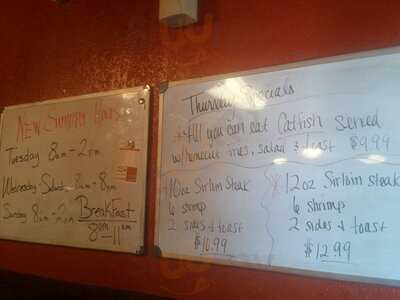 NEW Summer Hours
Tuesday 8am-2pm
Wednesday-Saturday 8am-8pm
Sunday 8am-2pm
BreakFast
8am-11am
Thursday Specials
* All you can eat Catfish Served
w/ homemade fries, salad & toast $9.99
* 10oz Sirloin Steak
6 shrimp
2 sides & toast
$10.99
* 12oz Sirloin steak
6 shrimps
2 sides & toast
$12.99